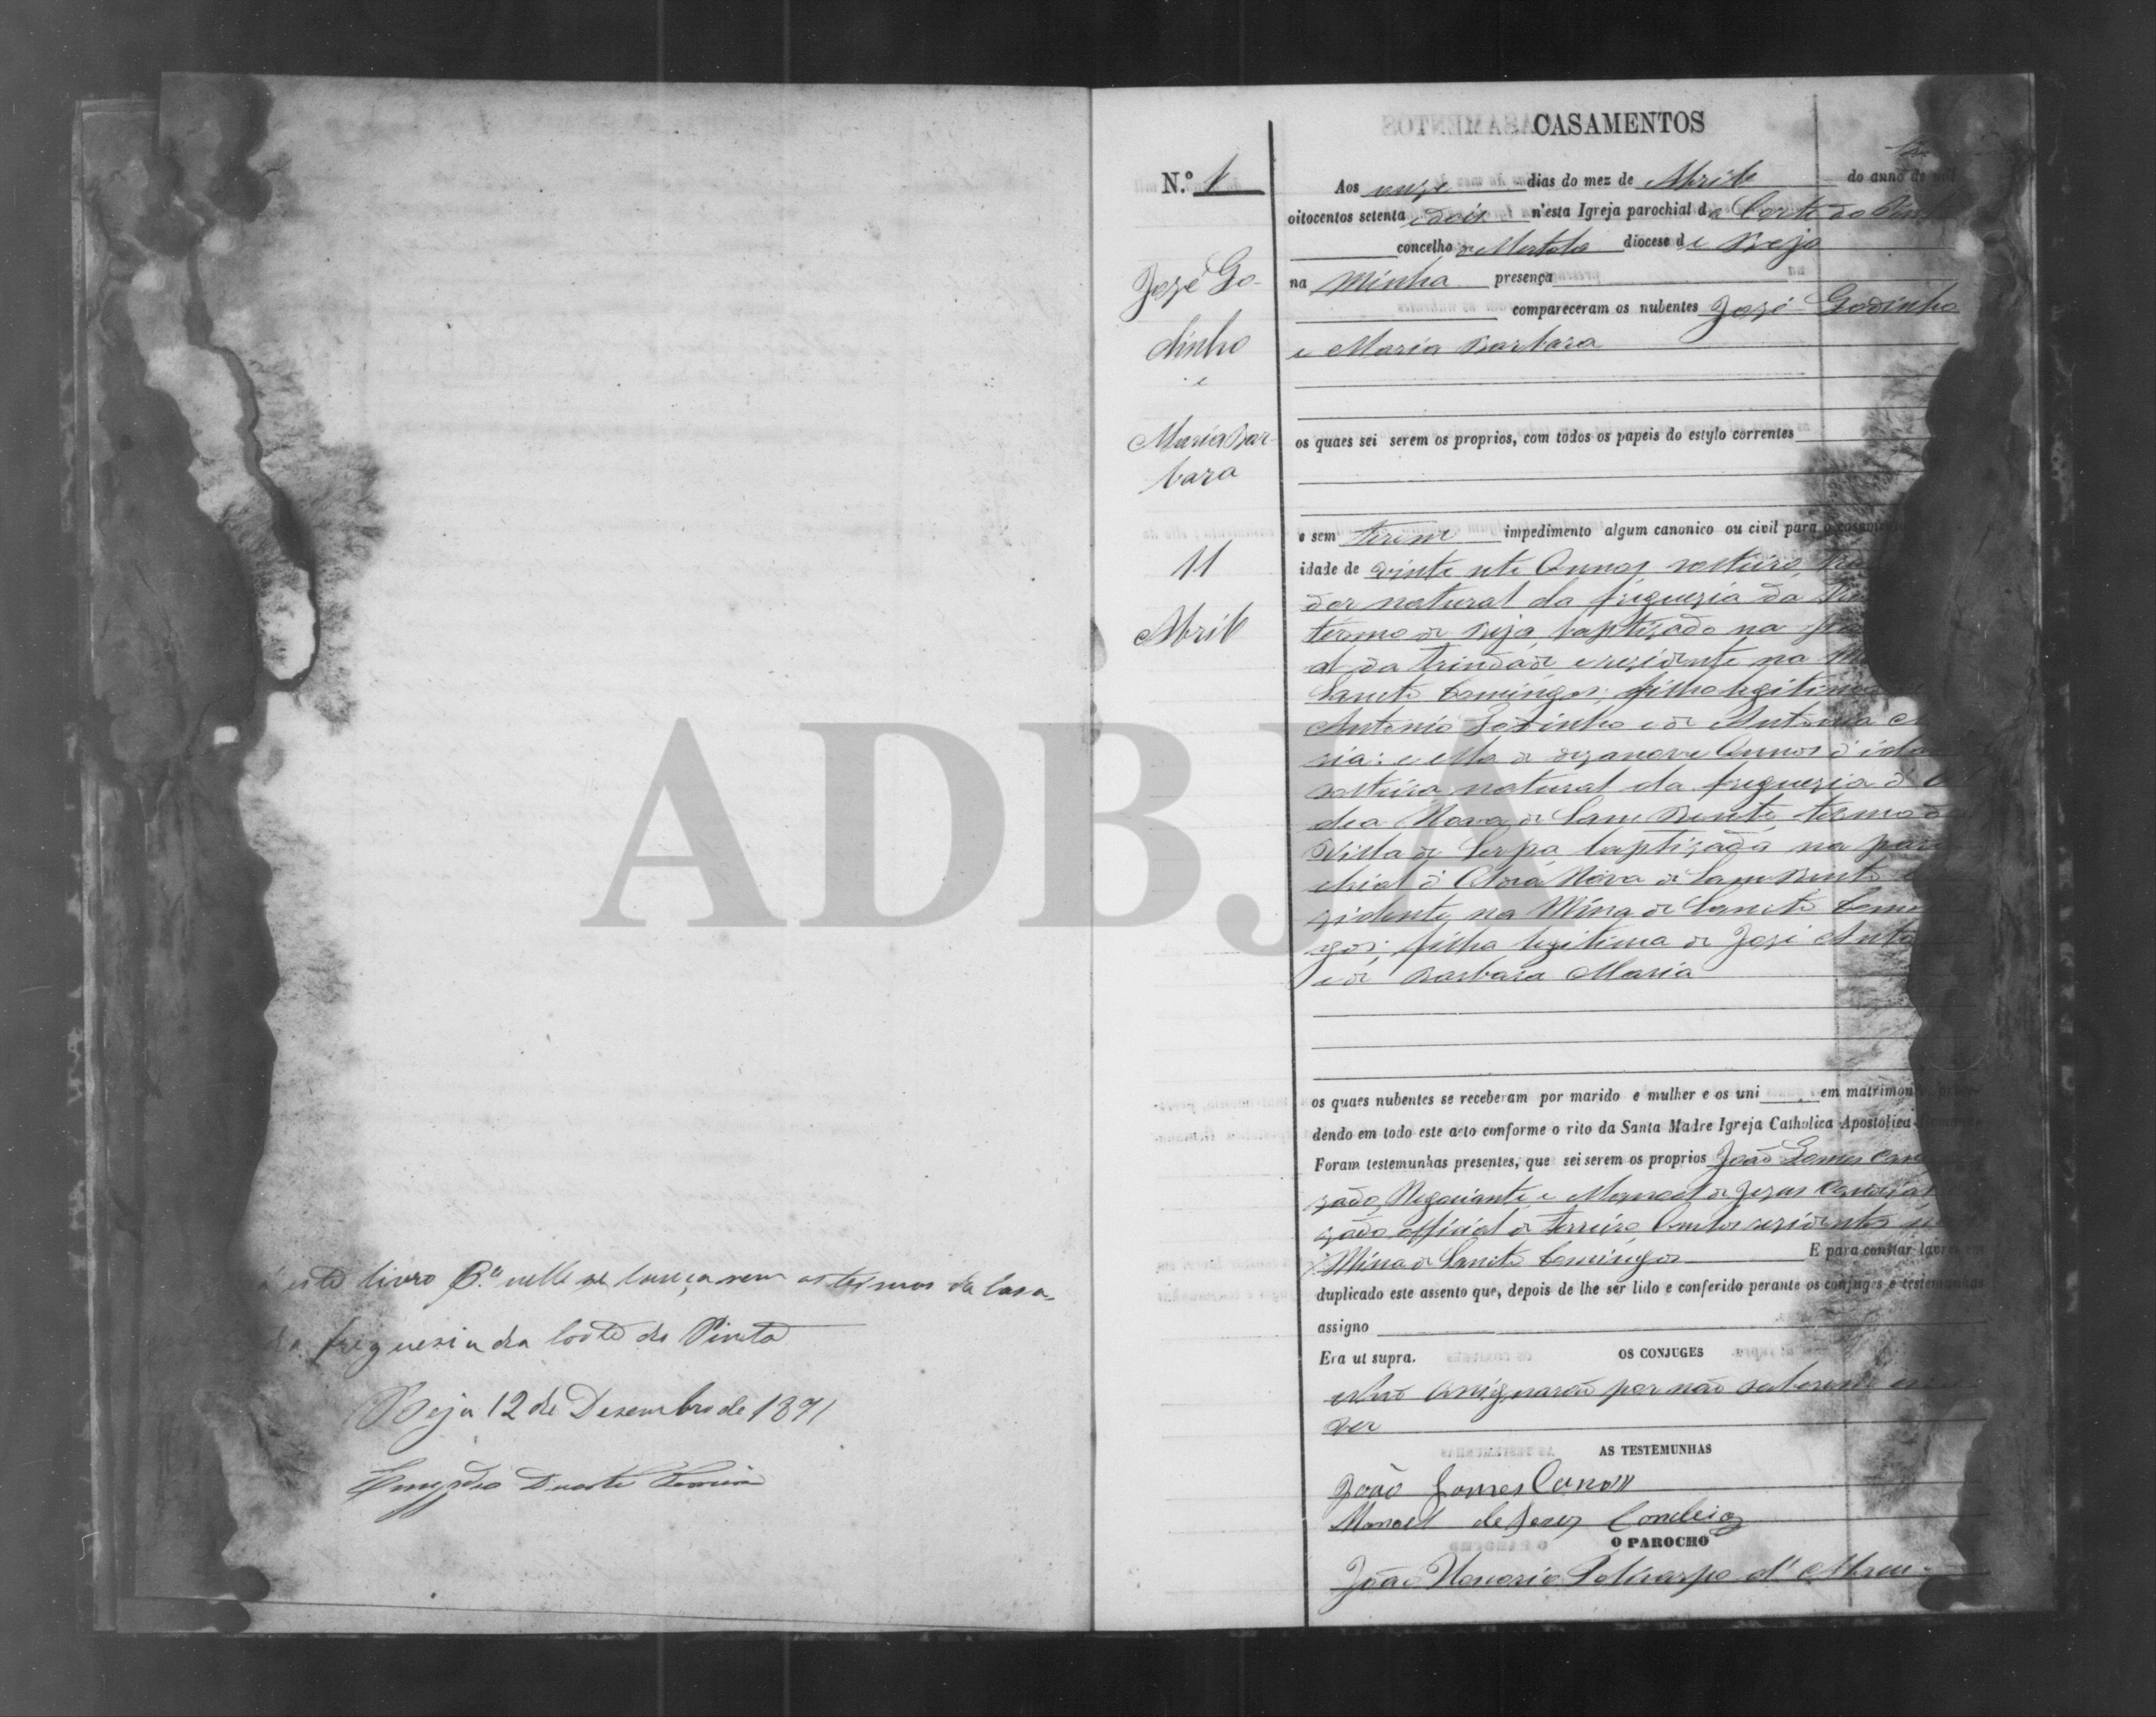 este livro P.ª nelle se lançarem os termos de Casa-
freguesia da Corte do Pinto
Beja 12 de Dezembro de 1871
Duarte
ADBJA
CASAMENTOS
N.º 1
José Go-
dinho
e
Maria Bar-
bara
11
Abril
Aos onze dias do mez de Abril do anno de mil
oitocentos setenta e dois n'esta Igreja parochial da Corte do Pinto
concelho de Mertola diocese de Beja
na Minha presença
compareceram os nubentes José Godinho
e Maria Barbara
os quaes sei serem os proprios, com todos os papeis do estylo correntes
e sem terem impedimento algum canonico ou civil para o casamento
idade de vinte sete Annos solteiro
dor natural da freguezia da
termo de Beja, baptizado na
al da Trindade e rezidente na
Sancto Domingos; filho legitimo
Antonio Godinho e de Antonia
ria: e ella de dezanove Annos d'idade
solteira natural da freguezia d'
dea Nova de Sam Bento, termo da
Villa de Serpa baptizada na paro
chial d'Aldea Nova de Sam Bento e
zidente na Mina de Sancto Domin
gos; filha legitima de José Anto
e de Barbara Maria
os quaes nubentes se receberam por marido e mulher e os uni em matrimonio, proce-
dendo em todo este acto conforme o rito da Santa Madre Igreja Catholica Apostolica Romana.
Foram testemunhas presentes, que sei serem os proprios João Gomes
zado, Negociante e Manoel de Jezus Candeias
zado official de ferreiro Ambos rezidentes
Mina de Sancto Domingos E para constar lavrei em
duplicado este assento que, depois de lhe ser lido e conferido perante os conjuges e testemunhas
assigno
Era ut supra.
OS CONJUGES
Não assignarão por não saberem escre
ver
AS TESTEMUNHAS
João Gomes
Manoel de Jesus Candeias
O PAROCHO
João Honorio Policarpo d'Abreu